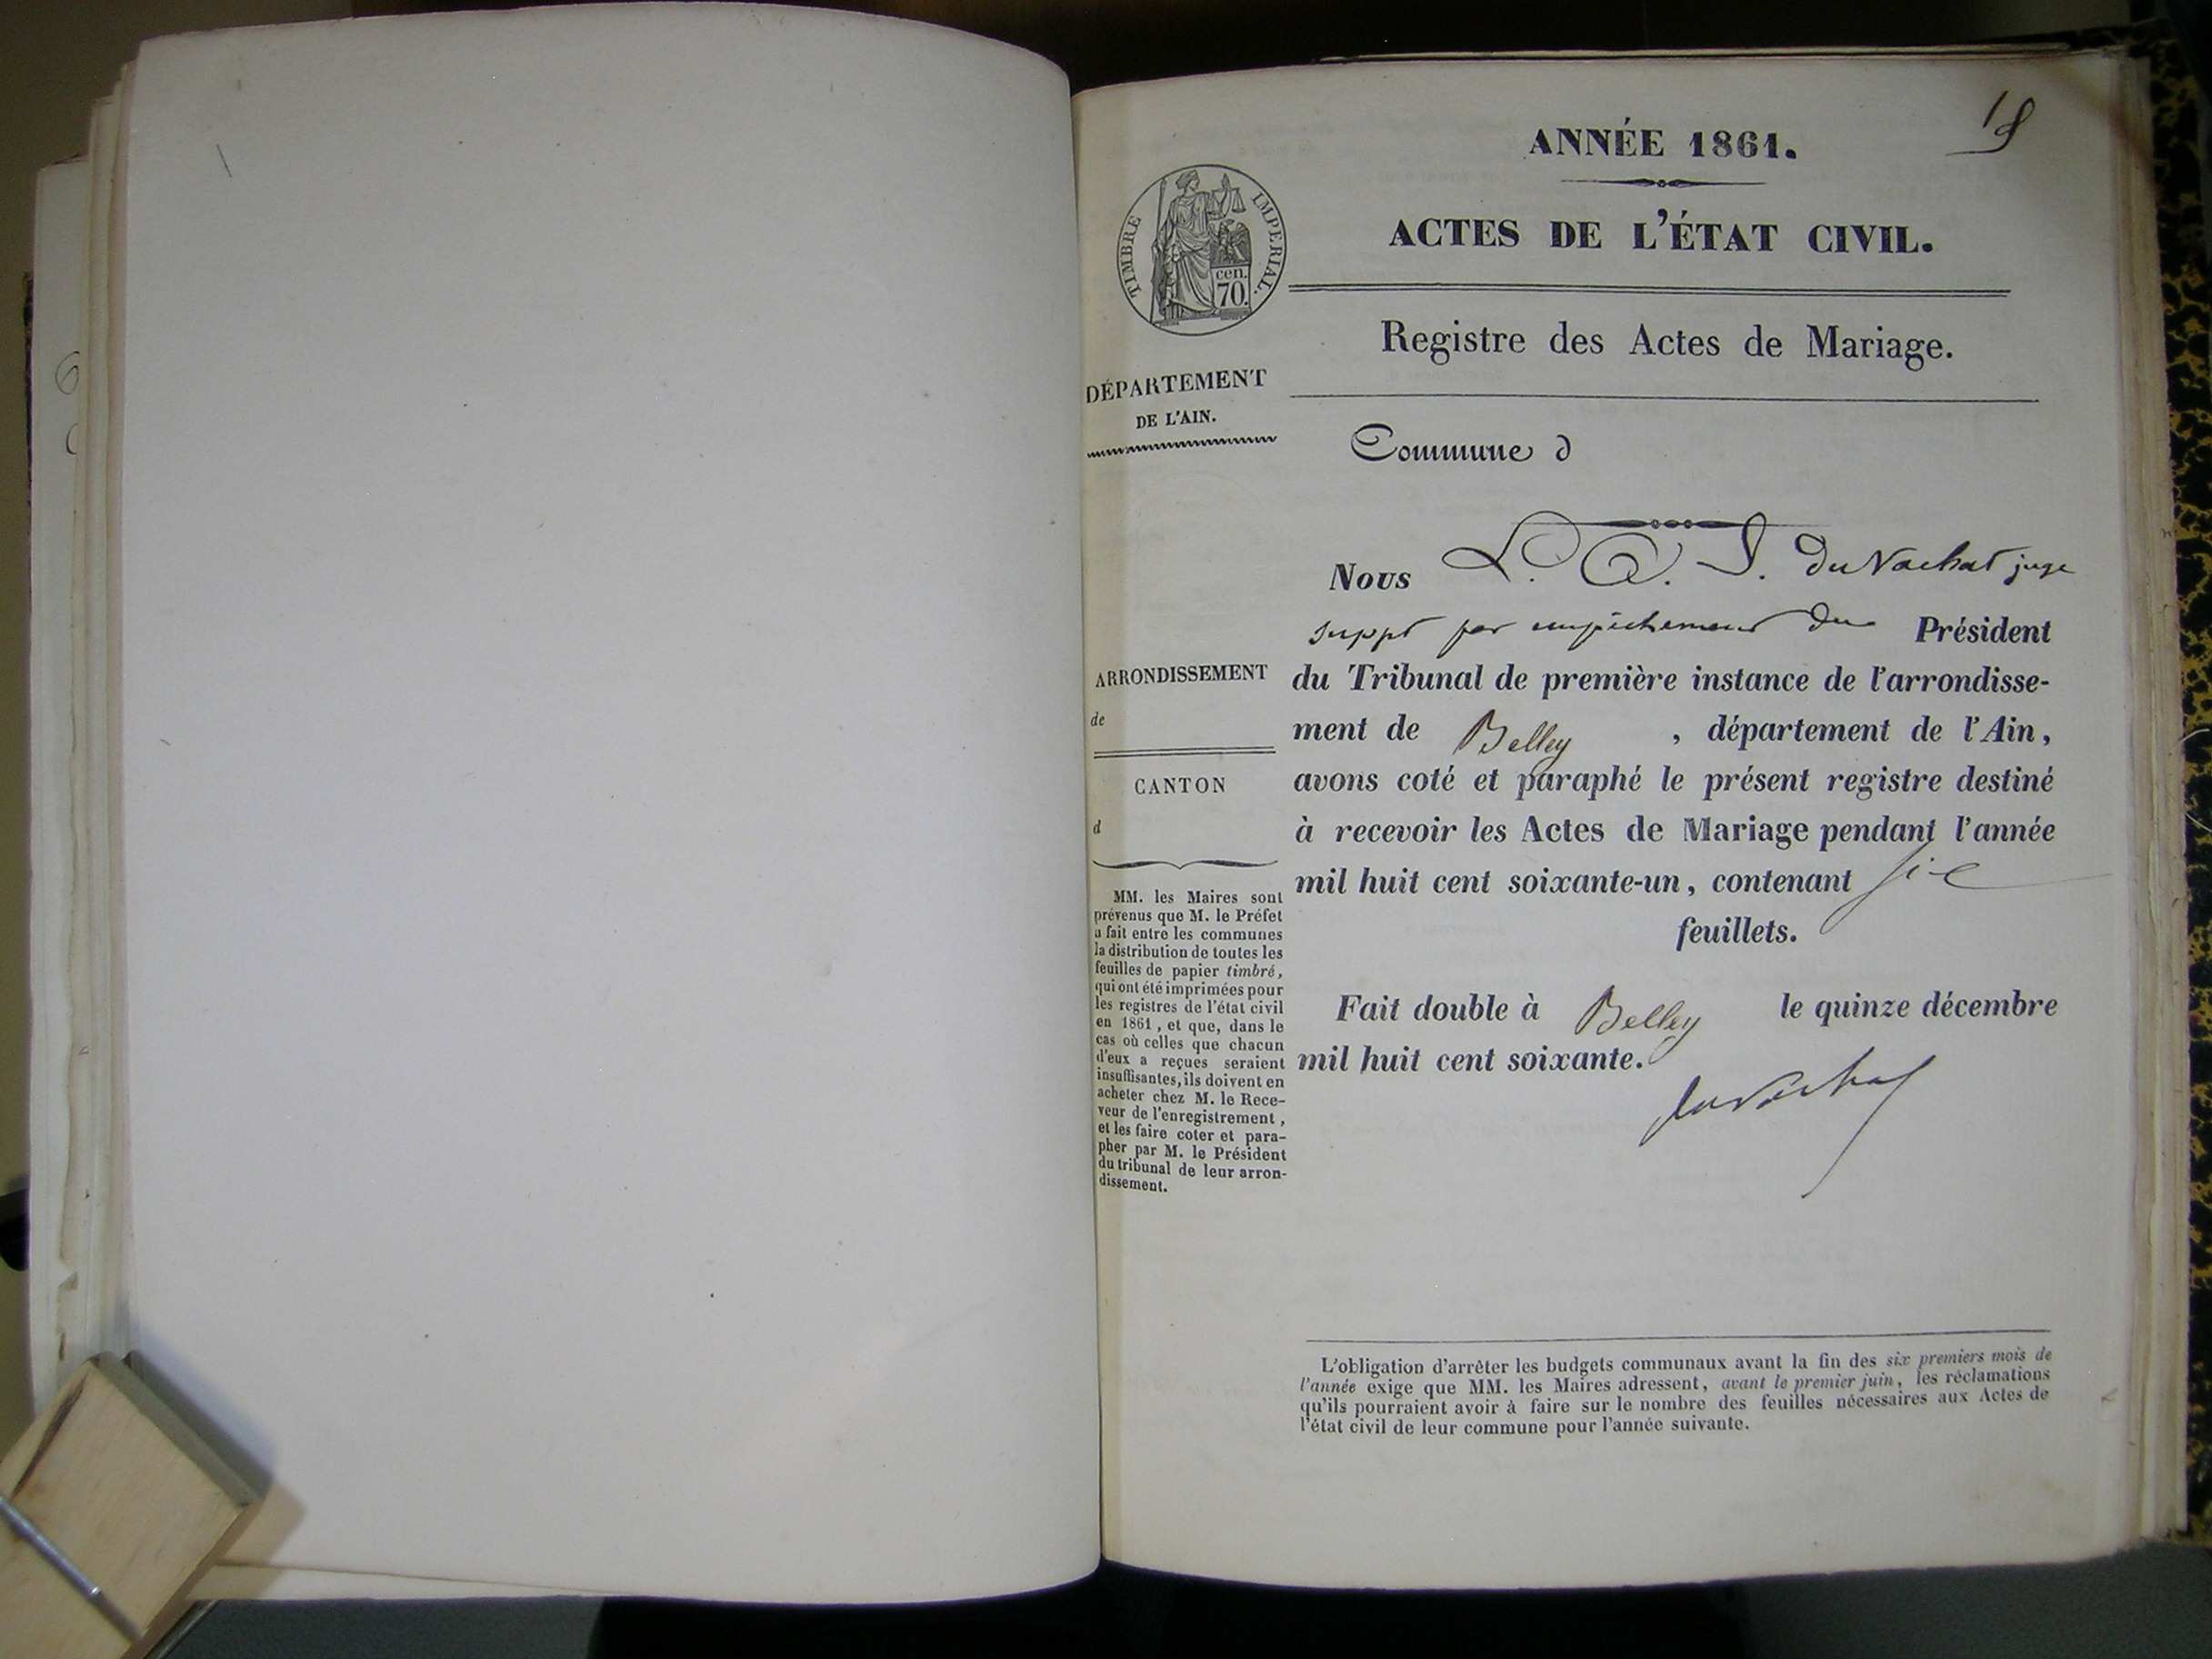 18
ANNÉE 1861.
ACTES DE L'ÉTAT CIVIL.
TIMBRE IMPERIAL.
cen.
70.
Registre des Actes de Mariage.
DÉPARTEMENT
DE L'AIN.
Commune d
Nous L. Q. J. Du Vachat juge
suppt par empêchement du Président
du Tribunal de première instance de l'arrondisse-
ment de Belley , département de l'Ain,
avons coté et paraphé le présent registre destiné
à recevoir les Actes de Mariage pendant l'année
mil huit cent soixante-un, contenant six
feuillets.
Fait double à Belley le quinze décembre
mil huit cent soixante.
du Vachat
ARRONDISSEMENT
de
CANTON
d
MM. les Maires sont
prévenus que M. le Préfet
a fait entre les communes
la distribution de toutes les
feuilles de papier timbré,
qui ont été imprimées pour
les registres de l'état civil
en 1861, et que, dans le
cas où celles que chacun
d'eux a reçues seraient
insuffisantes, ils doivent en
acheter chez M. le Rece-
veur de l'enregistrement,
et les faire coter et para-
pher par M. le Président
du tribunal de leur arron-
dissement.
L'obligation d'arrêter les budgets communaux avant la fin des six premiers mois de
l'année exige que MM. les Maires adressent, avant le premier juin, les réclamations
qu'ils pourraient avoir à faire sur le nombre des feuilles nécessaires aux Actes de
l'état civil de leur commune pour l'année suivante.